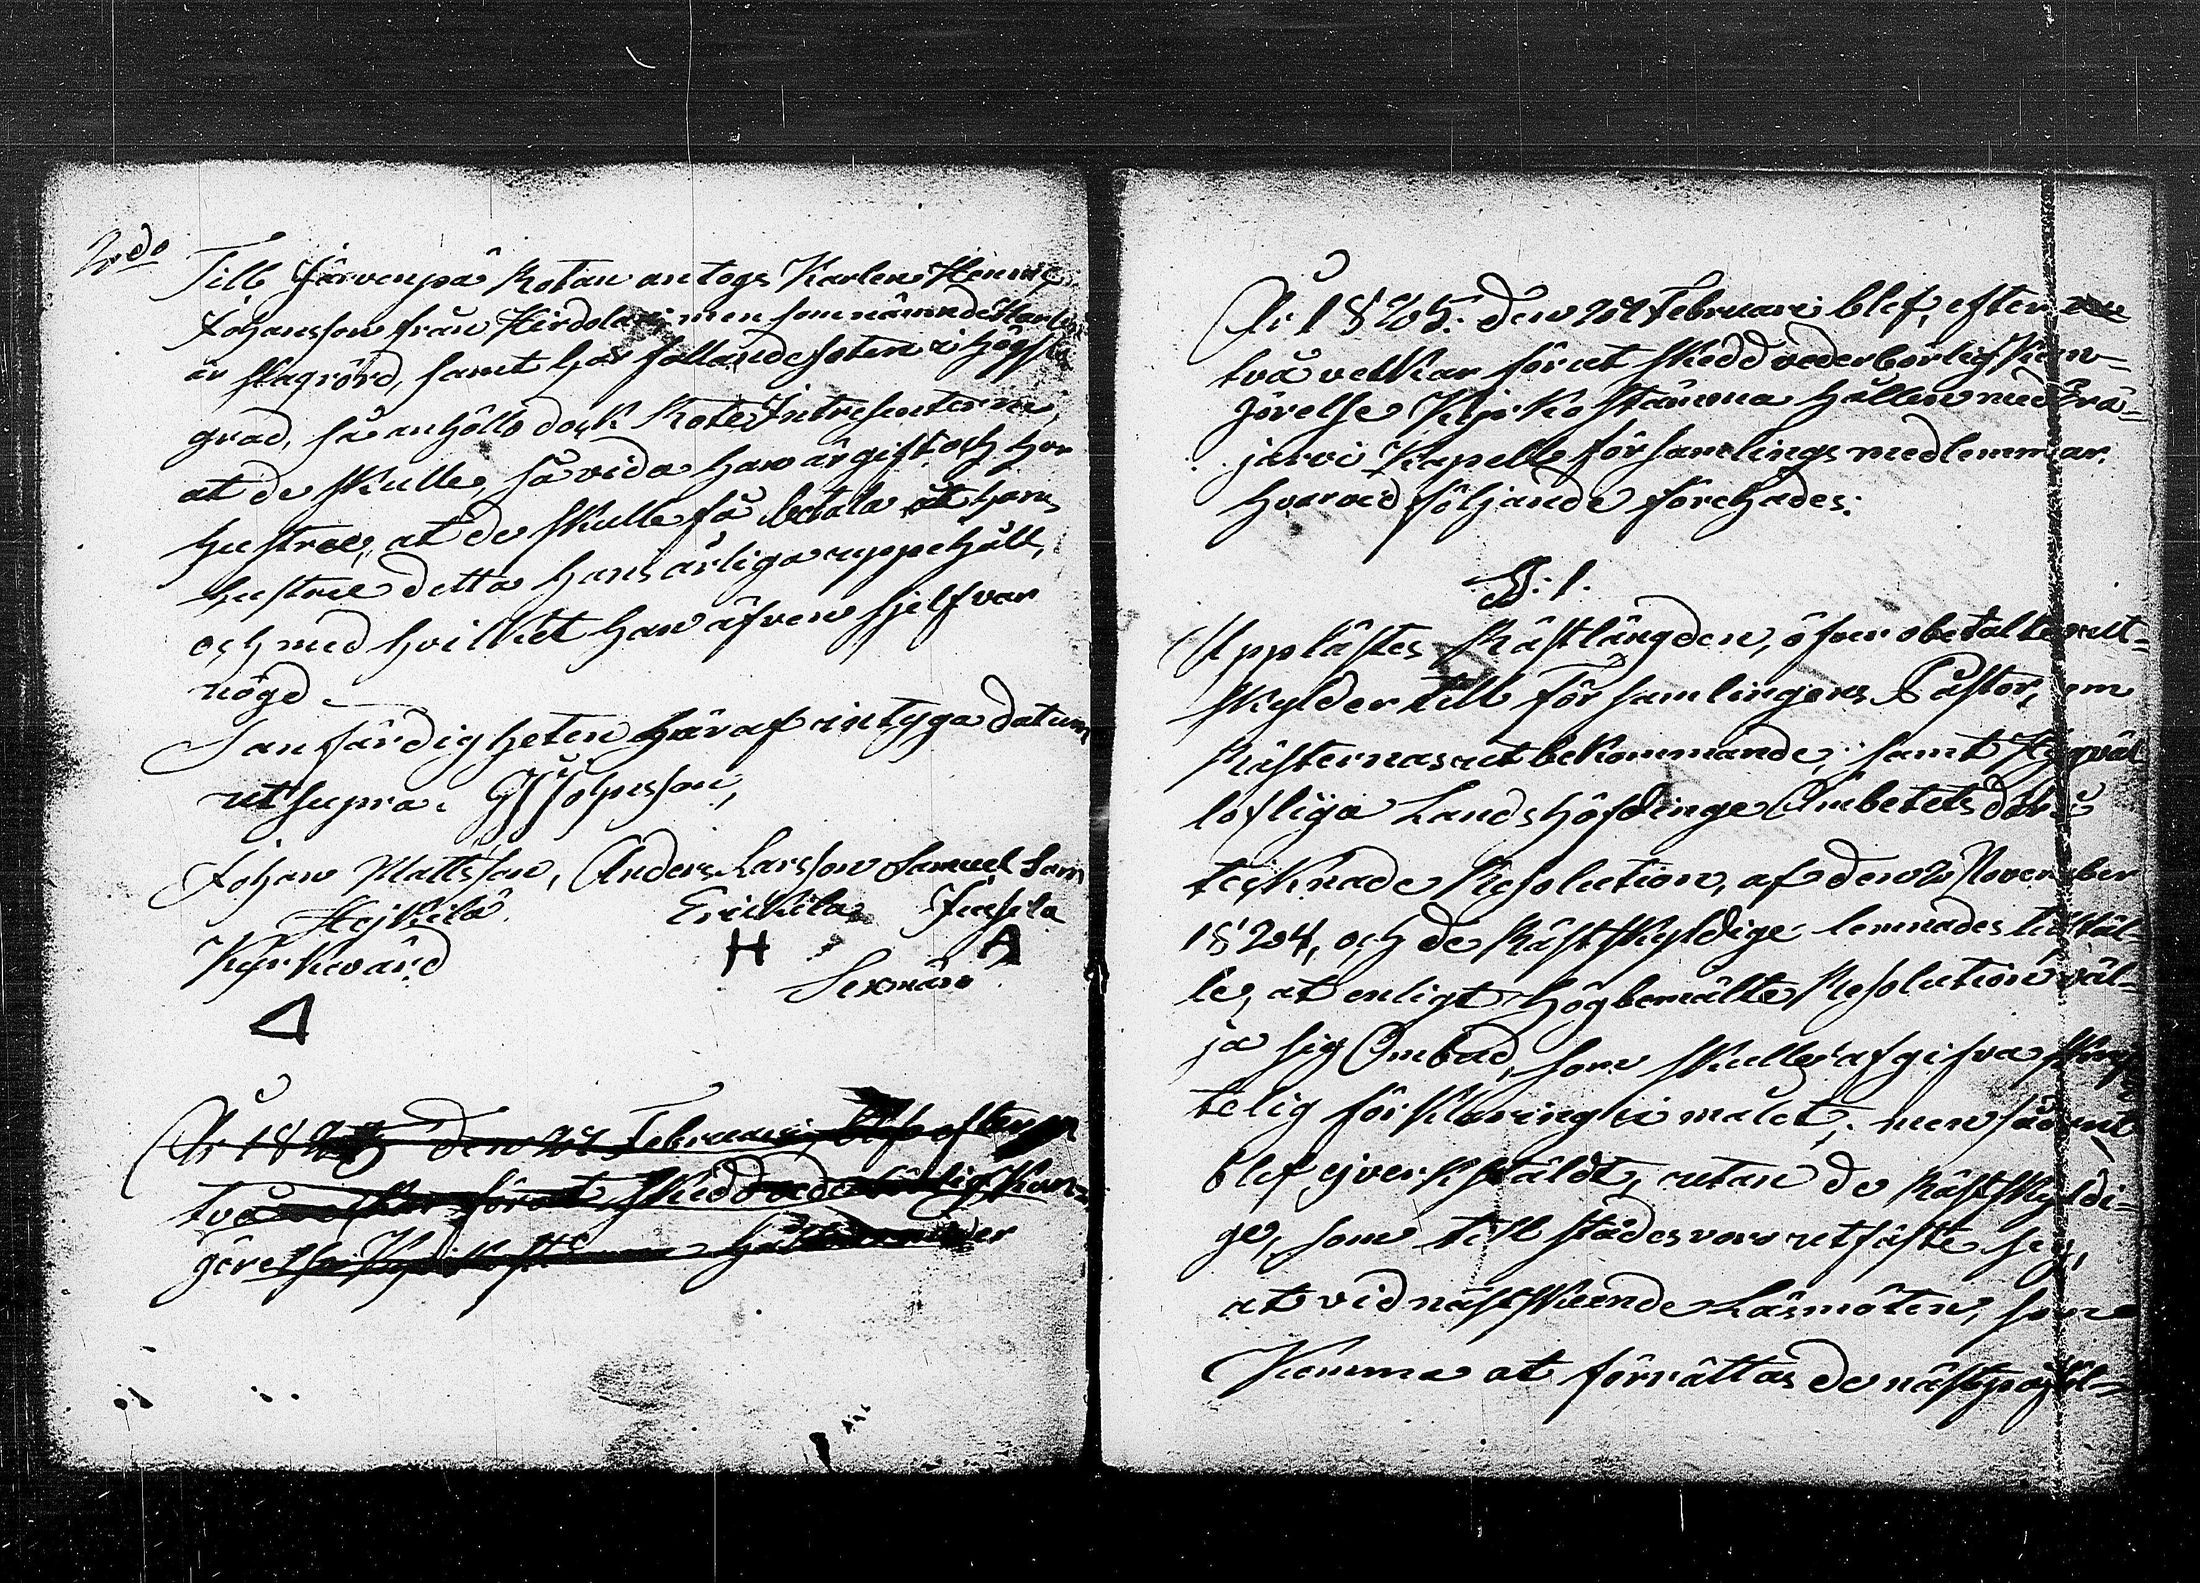 2:do Till Järvenpä Rotan antogs Karlen Henric
Johansson från Hirdolax; men som nämnde Karlen
är slagrörd, samt har fallandesoten i högsta
grad, så anhöllo dock Rote Intressenterne,
at de skulle, så vida han är gift och har
hustru, at de skulle få betala åt hans
hustru detta hans årliga uppehåll,
och med hvilket han äfven sjelf var
nögd.
Sanfärdigheten häraf intyga datum
ut supra.
Johan Mattsson, Anders Larsson Samuel Sam
Hejkilä Erickila Jussila
Kyrkovärd H A
Sexmän
År 1825 den 27 Februari, blef efter
två veckor förut skedd vederbörlig Kun-
görelse Kyrkostämma hållen
År 1825. den 27 Februari blef, efter
två veckor förut skedd vederbörlig Kun-
görelse Kyrkostämma hållen med Trä-
järvi Kapells församlings medlemmar.
hvarvid följande förehades:
§. 1.
Upplästes Rästlängden, öfver obetalte ut-
skylder till Församlingens Pastor, om
Rästernas utbekommande; samt Högväl
lofliga Landshöfdinge Embetets derå
tecknade Resolution, af den 20 November
1824, och de Rästskyldige lemnades tilfäl-
le, at enligt Högbemälte Resolution väl-
ja sig Ombud, som skulle afgifva skrif-
telig förklaring i målet; men sådant
blef ej verkstäldt, utan de Rästskyldi-
ge, som till städes voro utfäste sig,
at vid nästskeende Läsmöten, som
Komma at förrättas de nästpåföl-